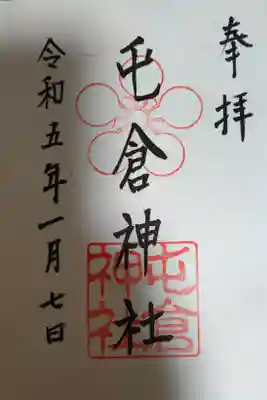 奉拝
屯倉神社
令和五年一月七日
屯倉
神社